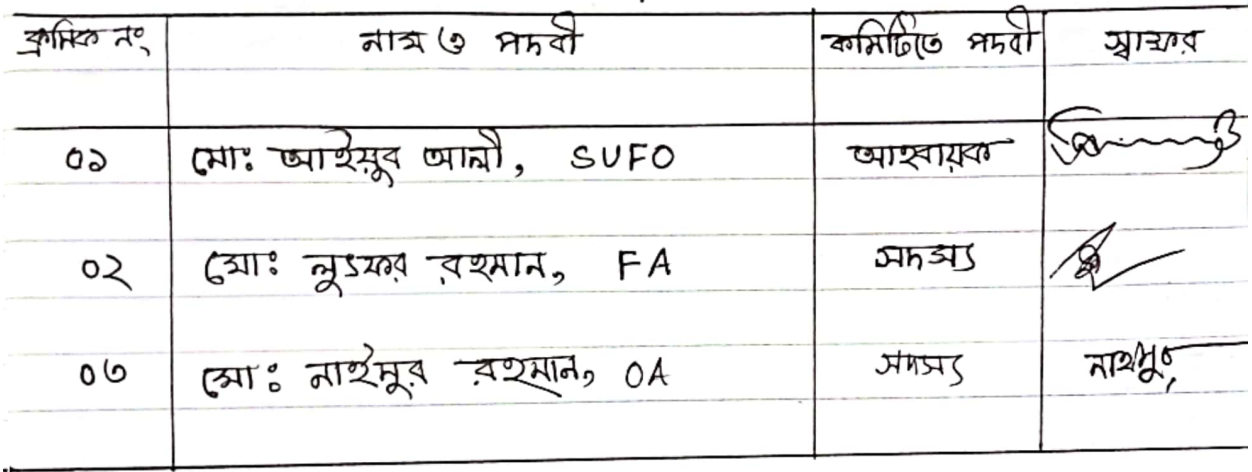 ক্রমিক নং নাম ও পদবী কমিটিতে পদবী স্বাক্ষর
০১ মোঃ আইয়ুব আলী, SUFO আহবায়ক
০২ মোঃ লুৎফর রহমান, FA সদস্য
০৩ মোঃ নাইমুর রহমান, OA সদস্য নাইমুর